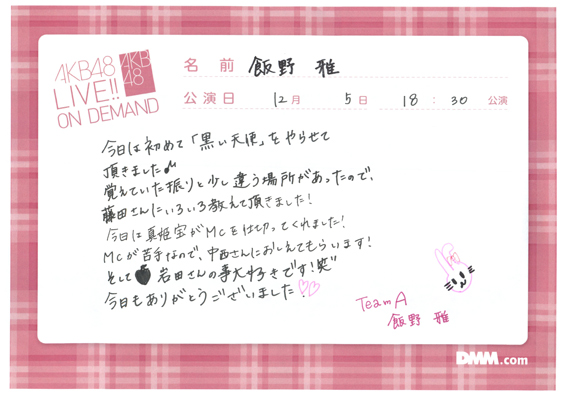 AKB48
LIVE!!
ON DEMAND
AKB
48
名前 飯野 雅
公演日 12月 5日 18:30 公演
今日は初めて「黒い天使」をやらせて
頂きました♪
覚えていた振りと少し違う場所があったので、
藤田さんにいろいろ教えて頂きました!
今日は真姫宝がMCを仕切ってくれました!
MCが苦手なので、中西さんにおしえてもらいます!
そして♥岩田さんの事大好きです!笑"
今日もありがとうございました!♡♡
Team A
飯野 雅
DMM.com